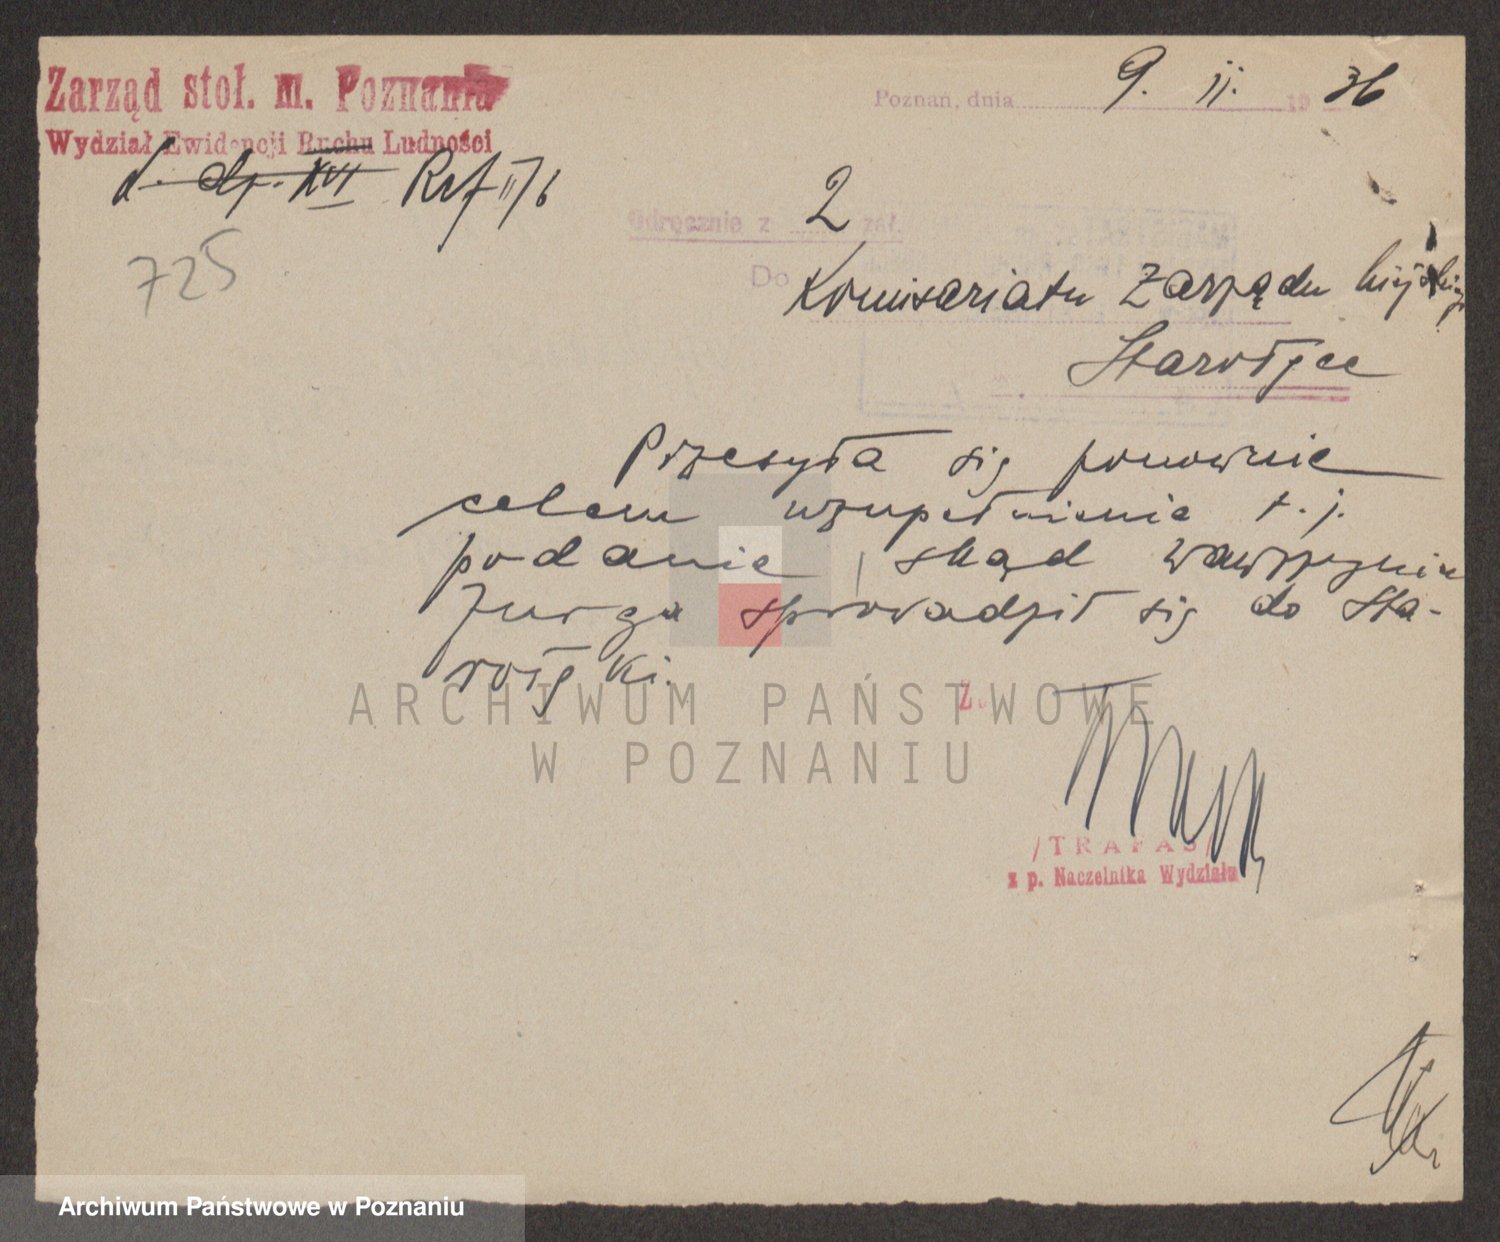 Zarząd stoł. m. Poznania
Wydział Ewidencji Ruchu Ludności
Poznań, dnia 9. II. 1936
L. dz. XVI Ref II/6
725
Odręcznie z 2 zał.
Do Komisariatu Zarządu Miejskiego
Starołęce
Przesyła się ponownie
celem uzupełnienia t.j.
podanie, skąd Wawrzynin
Jurga sprowadził się do Sta-
rołęki.
Z
/TRAFAS/
z p. Naczelnika Wydziału
ARCHIWUM PAŃSTWOWE
W POZNANIU
Archiwum Państwowe w Poznaniu